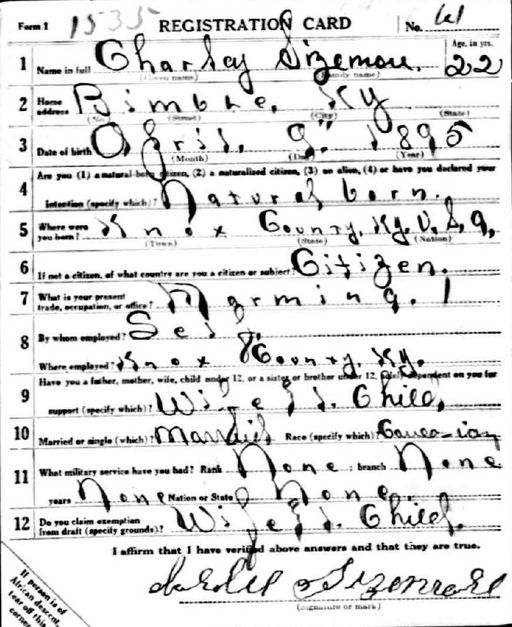 Form 1 1535 REGISTRATION CARD No. 61
1 Name in full Charley Sizemore. Age, in yrs. 22
(Given name) (Family name)
2 Home address Bimble, Ky
(No.) (Street) (City) (State)
3 Date of birth April, 9" 1895
(Month) (Day) (Year)
4 Are you (1) a natural-born citizen, (2) a naturalized citizen, (3) an alien, (4) or have you declared your
intention (specify which)? Natural born.
5 Where were you born? Knox County, Ky. U, S, A,
(Town) (State) (Nation)
6 If not a citizen, of what country are you a citizen or subject? Citizen.
7 What is your present trade, occupation, or office? Farming. 1
8 By whom employed? Self.
Where employed? Knox County, Ky.
9 Have you a father, mother, wife, child under 12, or a sister or brother under 12, solely dependent on you for
support (specify which)? Wife & 1. Child,
10 Married or single (which)? Married Race (specify which)? Caucasian
11 What military service have you had? Rank None ; branch None
years None Nation or State None
12 Do you claim exemption from draft (specify grounds)? Wife & 1. Child.
I affirm that I have verified above answers and that they are true.
Sizemore
(Signature or mark)
If person is of
African descent,
tear off this
corner